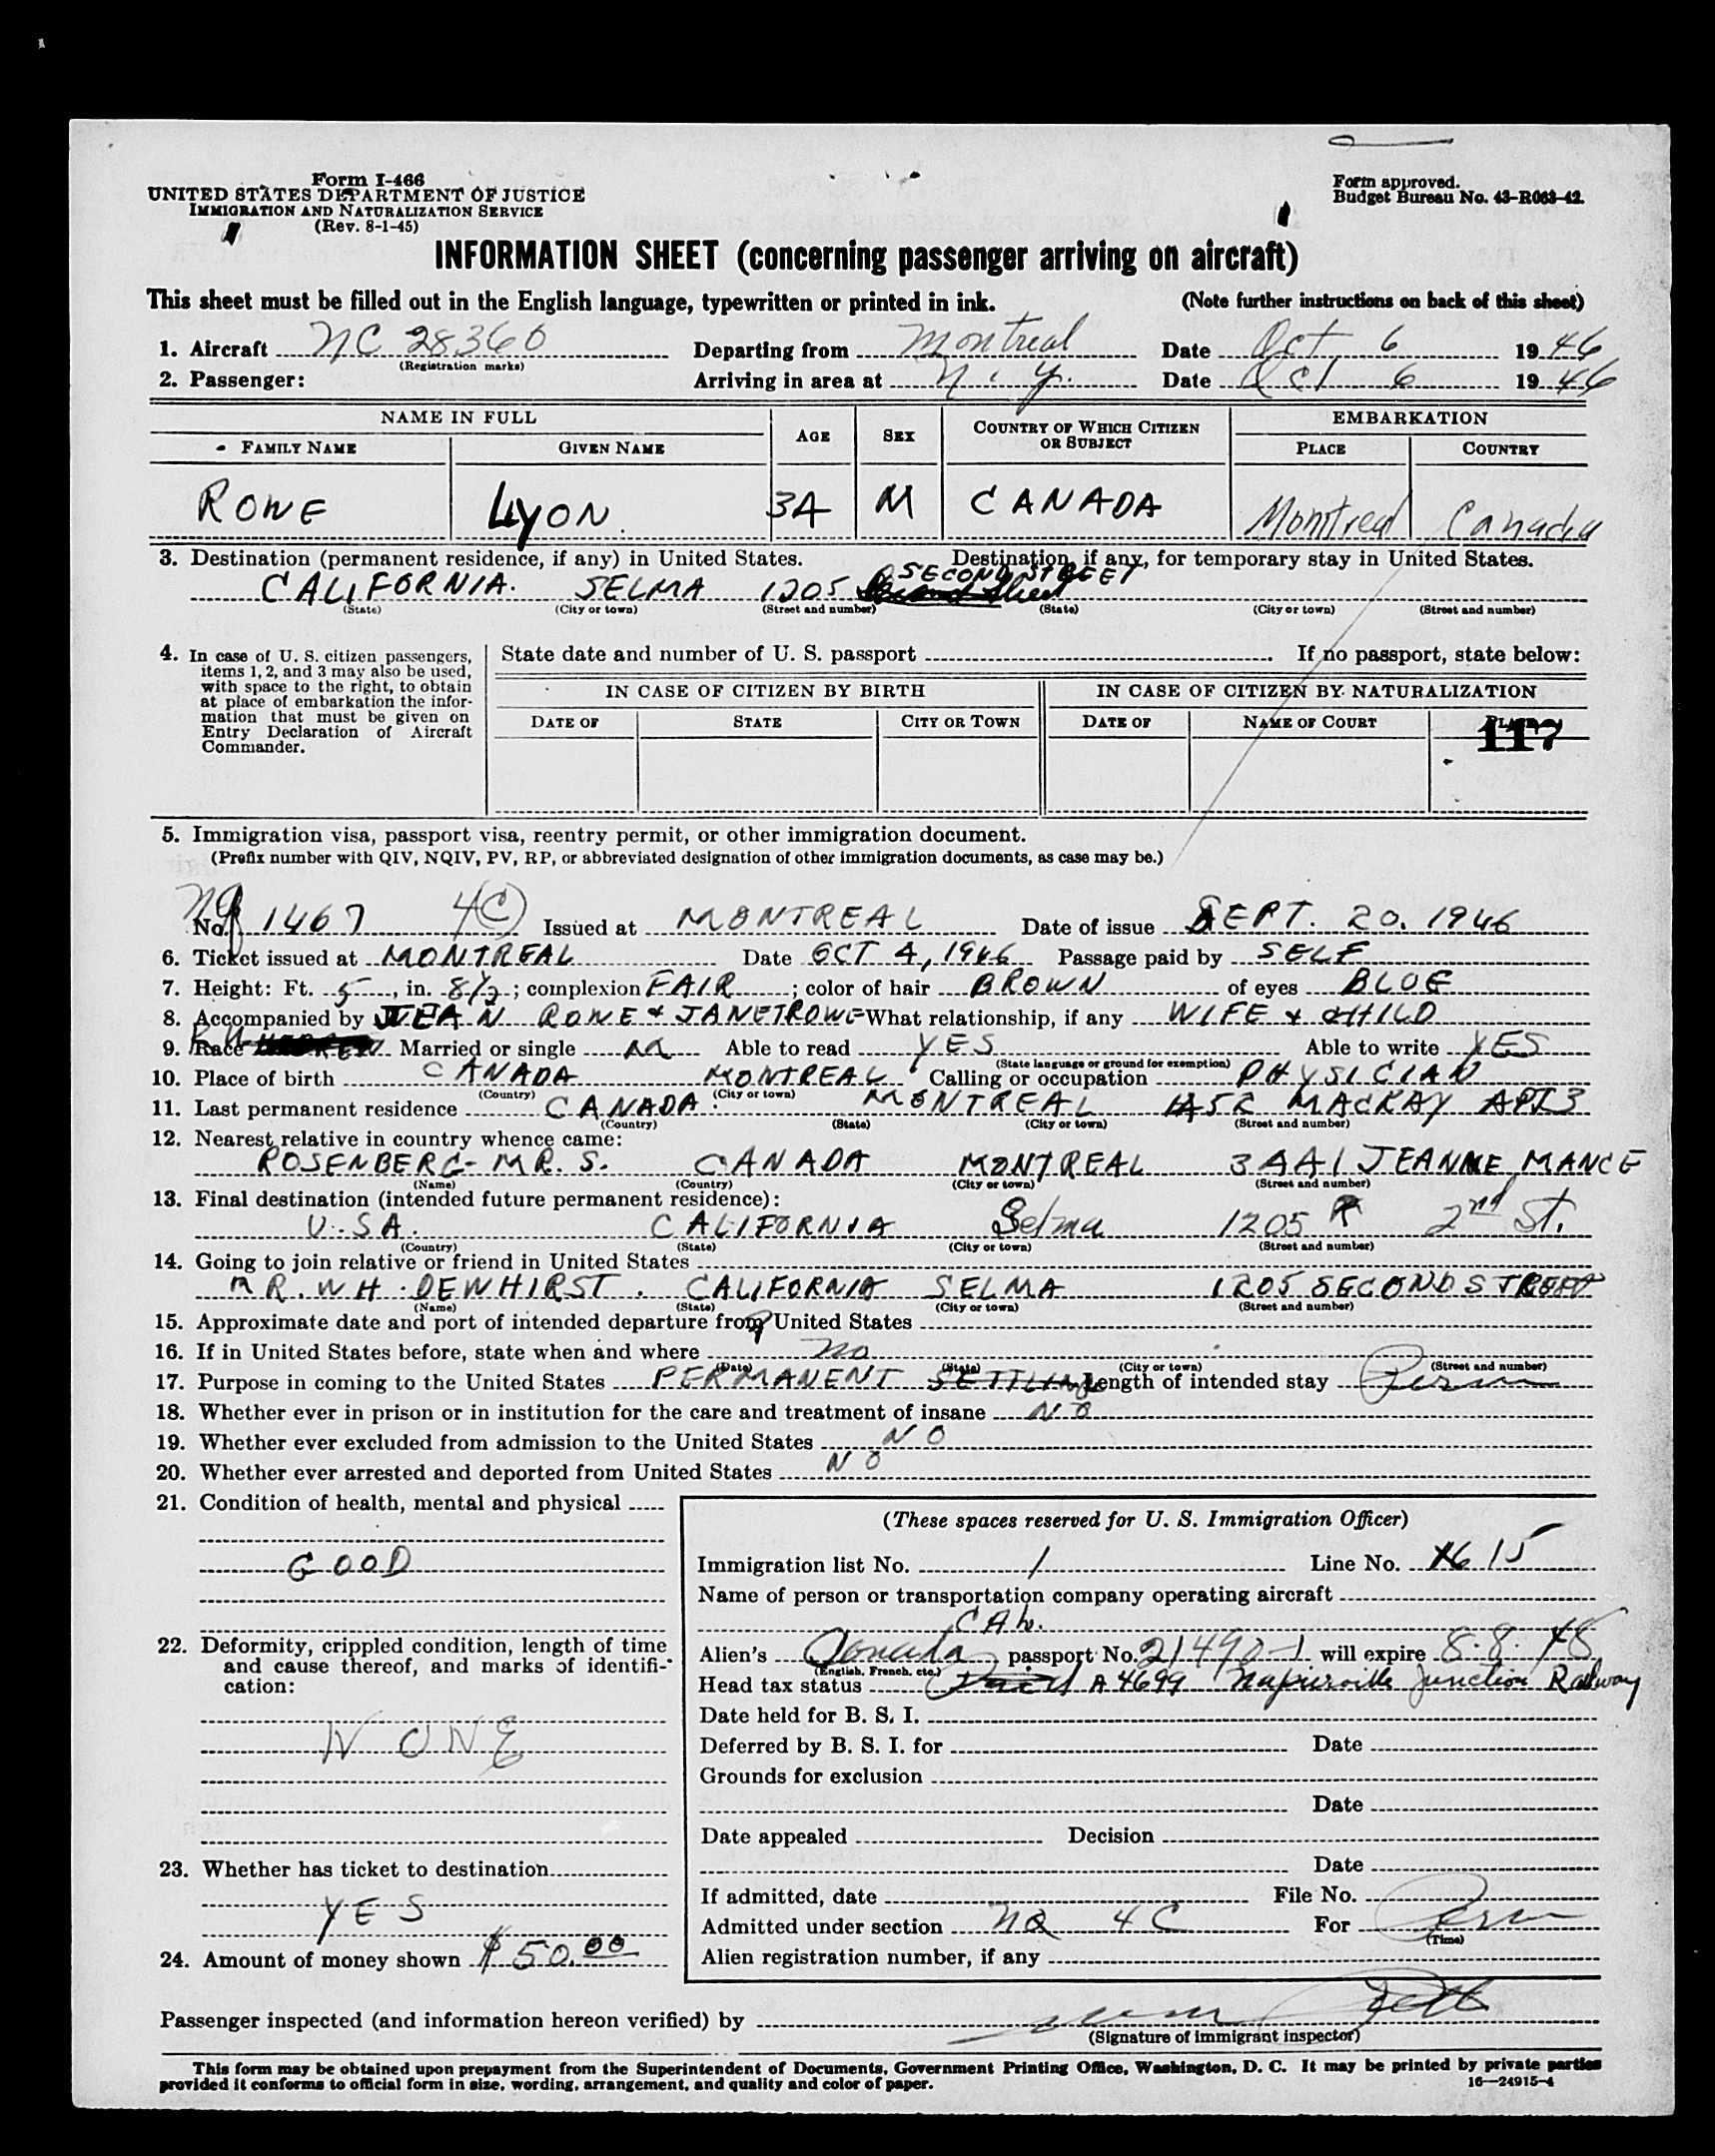 Form I-466
UNITED STATES DEPARTMENT OF JUSTICE
IMMIGRATION AND NATURALIZATION SERVICE
(Rev. 8-1-45)
Form approved.
Budget Bureau No. 43-R063-42.
INFORMATION SHEET (concerning passenger arriving on aircraft)
This sheet must be filled out in the English language, typewritten or printed in ink. (Note further instructions on back of this sheet)
1. Aircraft NC 28360 Departing from Montreal Date Oct 6 1946
(Registration marks)
2. Passenger: Arriving in area at N. Y. Date Oct 6 1946
NAME IN FULL AGE SEX COUNTRY OF WHICH CITIZEN OR SUBJECT EMBARKATION
FAMILY NAME GIVEN NAME PLACE COUNTRY
ROWE LYON. 34 M CANADA Montreal Canada
3. Destination (permanent residence, if any) in United States. Destination, if any, for temporary stay in United States.
CALIFORNIA. SELMA 1205 SECOND STREET
(State) (City or town) (Street and number) (State) (City or town) (Street and number)
4. In case of U. S. citizen passengers, items 1, 2, and 3 may also be used, with space to the right, to obtain at place of embarkation the information that must be given on Entry Declaration of Aircraft Commander.
State date and number of U. S. passport If no passport, state below:
IN CASE OF CITIZEN BY BIRTH IN CASE OF CITIZEN BY NATURALIZATION
DATE OF STATE CITY OR TOWN DATE OF NAME OF COURT
117
5. Immigration visa, passport visa, reentry permit, or other immigration document.
(Prefix number with QIV, NQIV, PV, RP, or abbreviated designation of other immigration documents, as case may be.)
No. 1467 4C) Issued at MONTREAL Date of issue SEPT. 20. 1946
6. Ticket issued at MONTREAL Date OCT 4, 1946 Passage paid by SELF
7. Height: Ft. 5, in. 8½; complexion FAIR; color of hair BROWN of eyes BLUE
8. Accompanied by JEAN ROWE & JANET ROWE What relationship, if any WIFE & CHILD
9. Race Married or single M Able to read YES Able to write YES
(State language or ground for exemption)
10. Place of birth CANADA MONTREAL Calling or occupation PHYSICIAN
(Country) (City or town)
11. Last permanent residence CANADA. MONTREAL 1452 MACKAY APT 3
(Country) (State) (City or town) (Street and number)
12. Nearest relative in country whence came:
ROSENBERG - MR. S. CANADA MONTREAL 3441 JEANNE MANCE
(Name) (Country) (City or town) (Street and number)
13. Final destination (intended future permanent residence):
U.S.A. CALIFORNIA Selma 1205 2nd St.
(Country) (State) (City or town) (Street and number)
14. Going to join relative or friend in United States
MR. WH. DEWHIRST. CALIFORNIA SELMA 1205 SECOND STREET
(Name) (State) (City or town) (Street and number)
15. Approximate date and port of intended departure from United States
16. If in United States before, state when and where no
(Date) (State) (City or town) (Street and number)
17. Purpose in coming to the United States PERMANENT SETTLING Length of intended stay Perm
18. Whether ever in prison or in institution for the care and treatment of insane NO
19. Whether ever excluded from admission to the United States NO
20. Whether ever arrested and deported from United States NO
21. Condition of health, mental and physical
GOOD
22. Deformity, crippled condition, length of time and cause thereof, and marks of identification:
NONE
23. Whether has ticket to destination
YES
24. Amount of money shown $50.00
(These spaces reserved for U. S. Immigration Officer)
Immigration list No. 1 Line No. 15
Name of person or transportation company operating aircraft
Alien's Canada passport No. 21490-1 will expire 8.8.48
(English, French, etc.)
Head tax status A4699 Napierville Junction Railway
Date held for B. S. I.
Deferred by B. S. I. for Date
Grounds for exclusion
Date
Date appealed Decision
Date
If admitted, date File No.
Admitted under section NQ 4C For Perm
(Time)
Alien registration number, if any
Passenger inspected (and information hereon verified) by
(Signature of immigrant inspector)
This form may be obtained upon prepayment from the Superintendent of Documents, Government Printing Office, Washington, D. C. It may be printed by private parties
provided it conforms to official form in size, wording, arrangement, and quality and color of paper. 16—24915-4